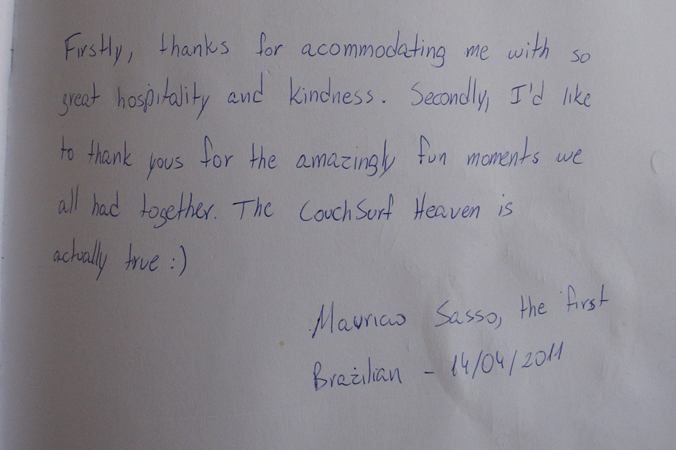 Firstly, thanks for acommodating me with so
great hospitality and kindness. Secondly, I'd like
to thank yous for the amazingly fun moments we
all had together. The CouchSurf Heaven is
actually true :)
Mauricio Sasso, the first
Brazilian - 14/04/2011